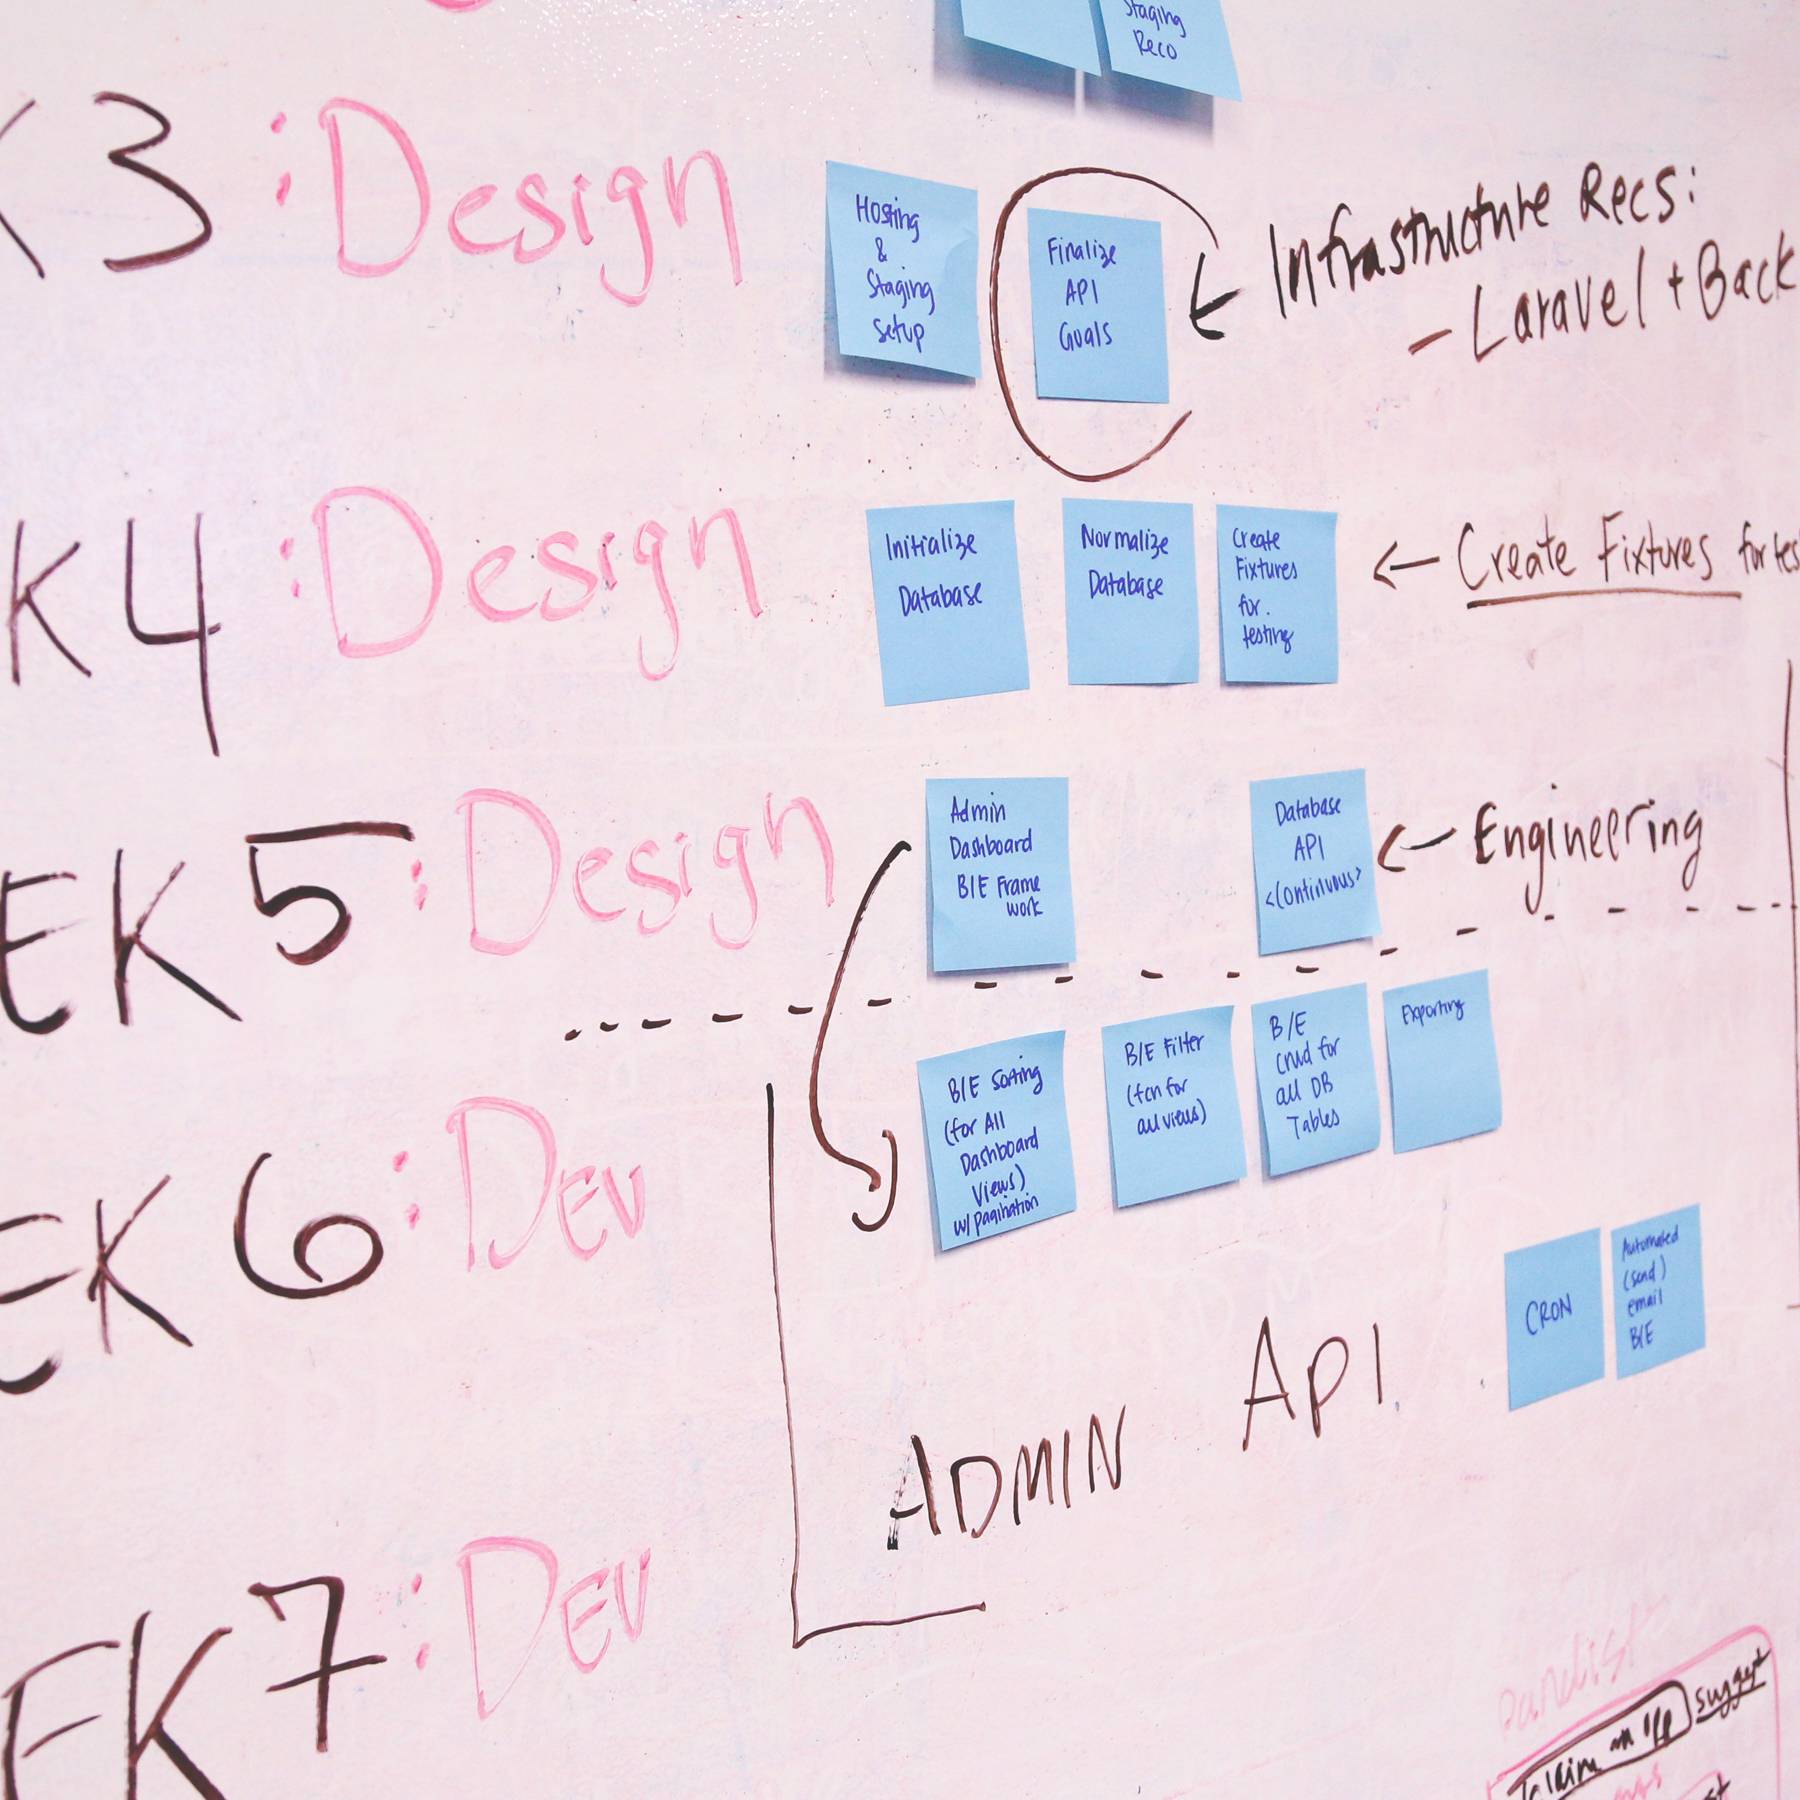 Staging
Reco
K 3 : Design
Hosting
&
Staging
Setup
Finalize
API
Goals
Infrastructure Recs:
- Laravel + Back
K 4 : Design
Initialize
Database
Normalize
Database
Create
Fixtures
for.
testing
← Create Fixtures for tes
EK 5 : Design
Admin
Dashboard
B/E Frame
work
Database
API
<Continuous>
← Engineering
EK 6 : DEV
B/E Sorting
(for All
Dashboard
Views)
w/ pagination
B/E Filter
(fcn for
all views)
B/E
crud for
all DB
Tables
Exporting
CRON
Automated
(send)
email
B/E
ADMIN API
EK 7 : DEV
suggest